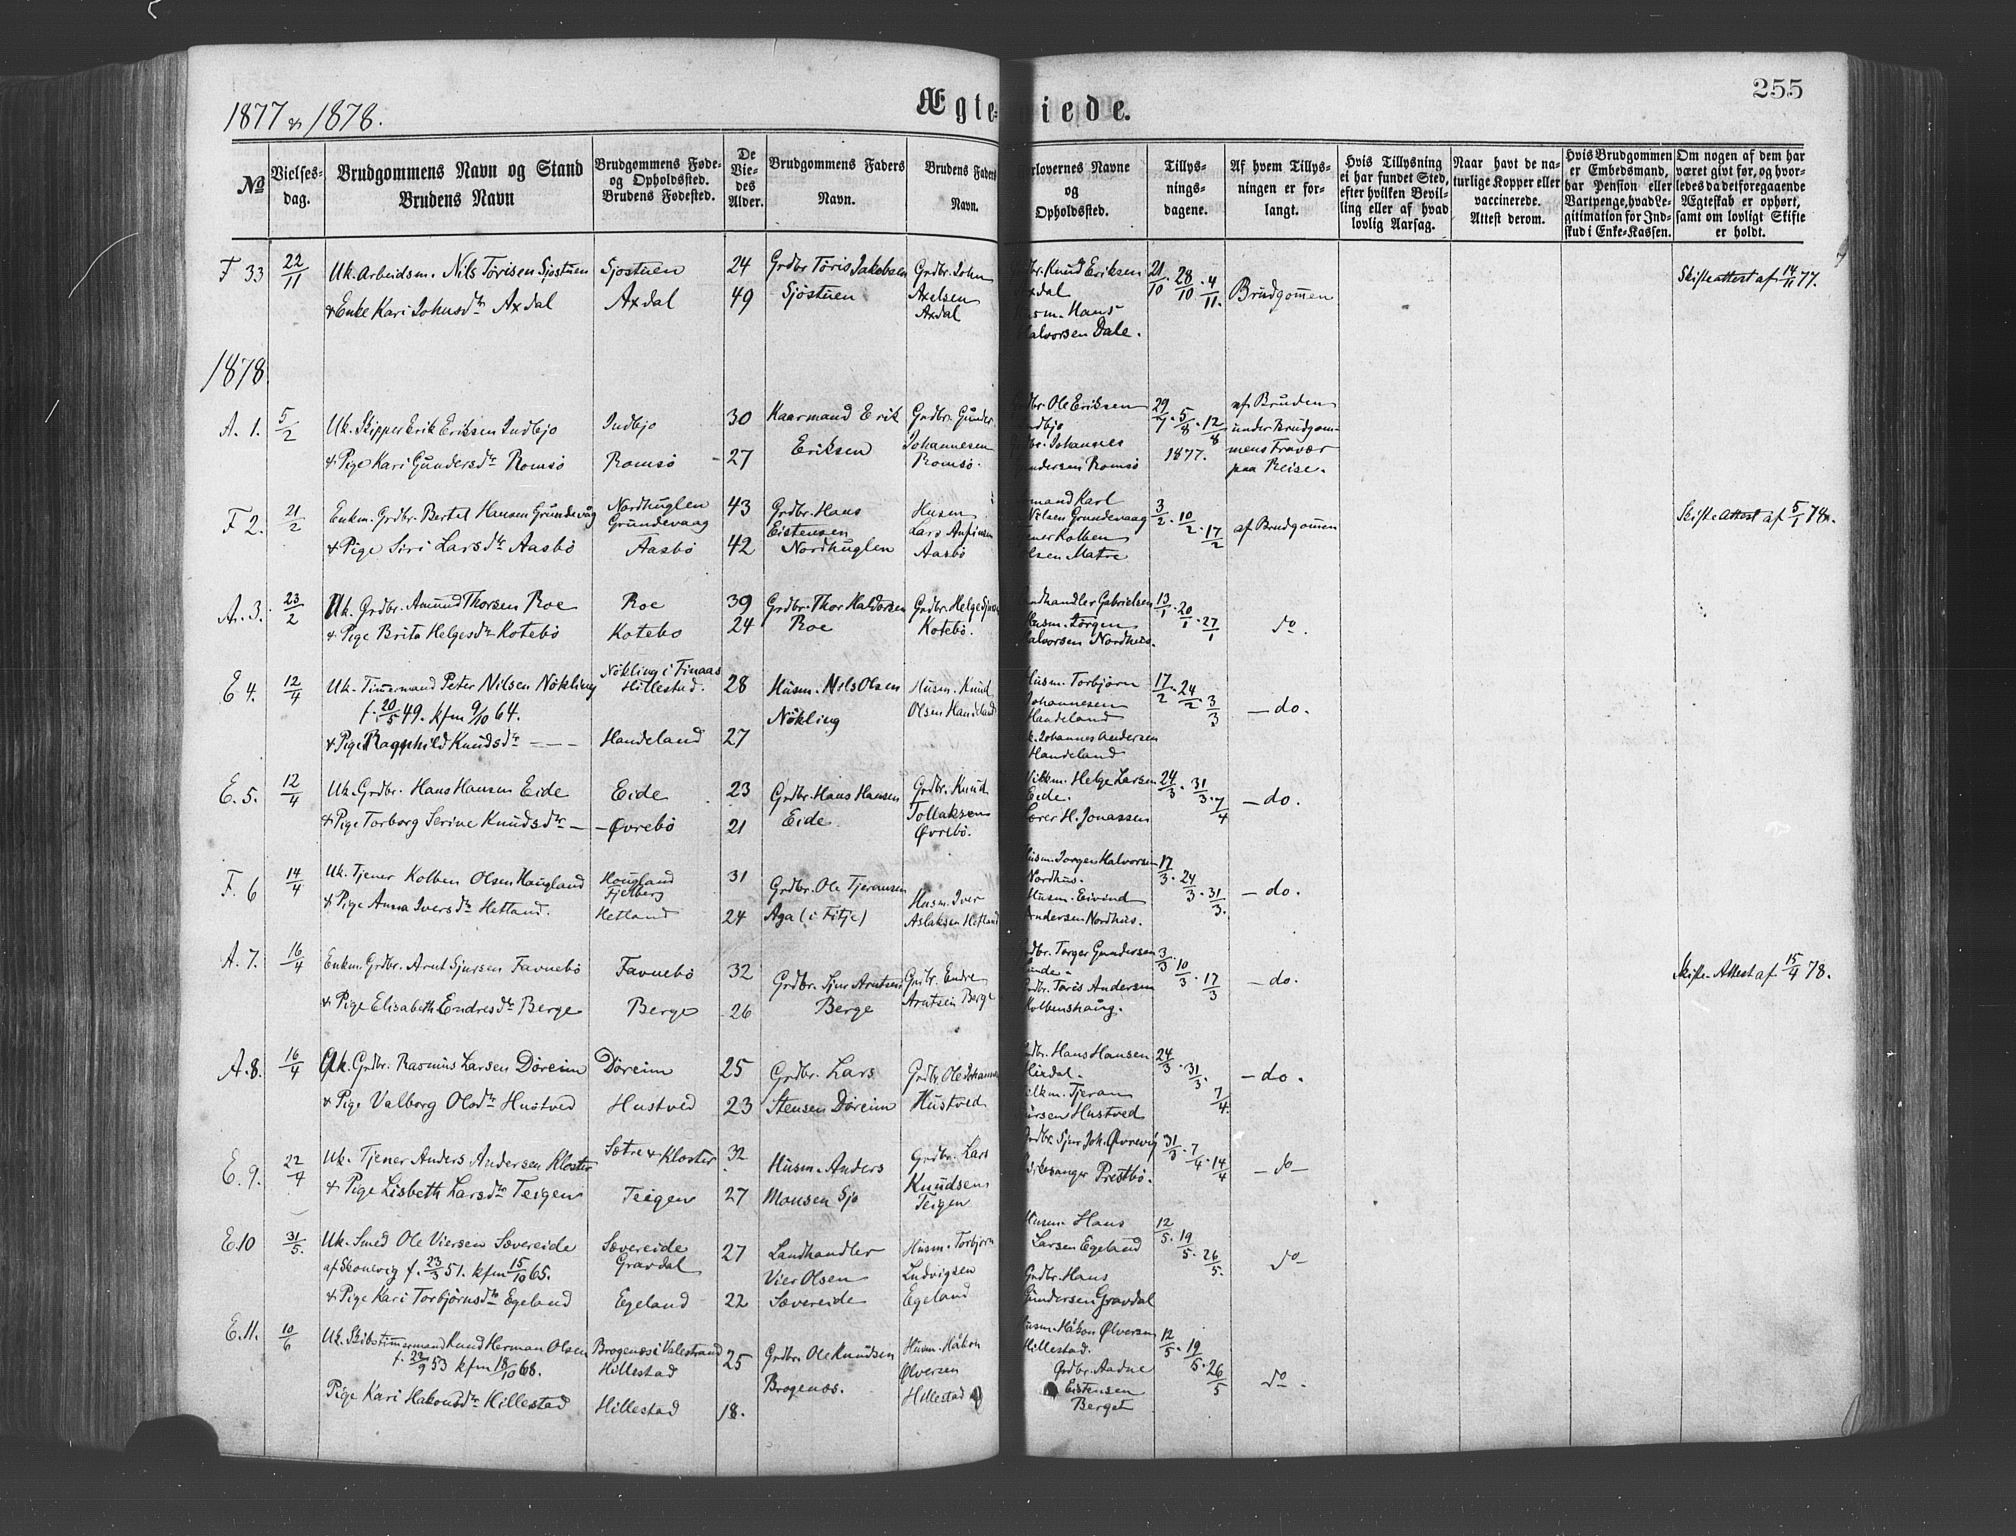 1877 & 1878.
Ægteviede.
255
No
Vielses-dag.
Brudgommens Navn og Stand
Brudens Navn
Brudgommens Føde- og Opholdssted.
Brudens Fødested.
De Viedes Alder.
Brudgommens Faders Navn.
Brudens Faders Navn.
orlovernes Navne og Opholdssted.
Tillysningsdagene.
Af hvem Tillysningen er forlangt.
Hvis Tillysning ei har fundet Sted, efter hvilken Bevilling eller af hvad lovlig Aarsag.
Naar havt de naturlige Kopper eller vaccinerede. Attest derom.
Hvis Brudgommen er Embedsmand, har Pension eller Vartpenge, hvad Legitimation for Indskud i Enke-Kassen.
Om nogen af dem har været givt før, og hvorledes da det foregaaende Ægteskab er ophørt, samt om lovligt Skifte er holdt.
F 33 22/11 Uk. Arbeidsm. Nils Tørisen Sjostuen Sjostuen 24 Grdbr Tøris Jakobsen Grdbr. John
Grdbr. Knud Eriksen 21/10 · 28/10 · 4/11. Brudgommen Skifteattest af 14/11 77.
& Enke Kari Johnsdtr Axdal Axdal 49 Sjöstuen Axelsen Axdal
Axdal
Husm. Hans
Halvorsen Dale.
1878.
A. 1. 5/2 Uk. Skipper Erik Eriksen Indbjo Indbjo 30 Kaarmand Erik Eriksen Grdbr. Gunder
Grdbr. Ole Eriksen 29/7 · 5/8 · 12/8 1877. af Bruden under Brudgommens Fravær paa Reise.
& Pige Kari Gundersdtr Romsö Romsö 27 Johannesen Romsö.
Indbjo
Grdbr. Johannes
Gundersen Romsö
F 2. 21/2 Enkm. Grdbr. Bertel Hansen Grundevåg Nordhuglen Grundevaag 43 Grdbr. Hans Eistensen Nordhuglen Husm Lars Anfinsen Aasbö
mand Karl
Nilsen Grundevaag 3/2 · 10/2 · 17/2 af Brudgommen Skifte Attest af 5/1 78.
& Pige Siri Larsdtr Aasbö Aasbö 42
Kolben
Olsen Matre
A. 3. 23/2 Uk. Grdbr. Amund Thorsen Roe Roe 39 Grdbr. Thor Haldorsen Roe Grdbr. Helge Sjursen Kotebö.
Landhandler Gabrielsen 13/1 · 20/1 · 27/1 do.
& Pige Brita Helgesdtr Kotebö Kotebo 24
Husm. Jörgen
Halvorsen Nordhus.
E 4. 12/4 Uk. Timermand Peter Nilsen Nökling Nökling i Finaas Hillestad. 28 Husm. Nils Olsen Nökling Husm. Knud Olsen Handeland
f. 20/5 49. kfm 9/10 64.
Husm. Torbjörn 17/2 · 24/2 · 3/3 — do.
Johannesen
Handeland
& Pige Ragnhild Knudsdtr — Handeland 27
Johannes Andersen
Handeland
E. 5. 12/4 Uk. Grdbr. Hans Hansen Eide Eide 23 Grdbr. Hans Hansen Eide Grdbr. Knud Tollaksen Øvrebö.
Helge Larsen 24/3 · 31/3 · 7/4 — do.
Eide.
& Pige Torborg Serine Knudsdtr — Øvrebö 21
Lærer H. Jonassen
F. 6 14/4 Uk. Tjener Kolben Olsen Haugland Hougland Fjelberg 31 Grdbr. Ole Tjeransen Aga (i Fitje) Husm. Iver Aslaksen Hetland
Husm. Jorgen Halvorsen 17/3 · 24/3 · 31/3. — do.
Nordhus.
& Pige Anna Iversdtr Hetland. Hetland 24
Husm. Eivind
Andersen Nordhus.
A. 7. 16/4 Enkm. Grdbr. Arnt Sjursen Favnebö Favnebö 32 Grdbr. Sjur Arntsen Berge Grdbr. Endre Arntsen Berge
Grdbr. Torger Gundersen 3/3 · 10/3 · 17/3 — do. Skifte-Attest af 15/4 78.
& Pige Elisabeth Endresdtr Berge Berge 26
Grdbr. Töris Andersen
Kolbenshaug.
A. 8. 16/4 Uk. Grdbr. Rasmus Larsen Döreim Döreim 25 Grdbr. Lars Stensen Döreim Grdbr. Ole Johannes Hustved
Grdbr. Hans Hansen 24/3 · 31/3 · 7/4. — do.
& Pige Valborg Olsdtr Hustved Hustved 23
Tjeran
Hustved
E. 9. 22/4 Uk. Tjener Anders Andersen Kloster Sætre & Kloster 32 Husm. Anders Monsen Sjo Grdbr. Lars Knudsen Teigen
Grdbr Sjur Joh. Øvrevig 31/3 · 7/4 · 14/4 — do —
& Pige Lisbeth Larsdtr Teigen Teigen 27
Kirkesanger Prestbö.
E. 10 31/5. Uk. Smed Ole Viersen Sævereide Sævereide Gravdal 27 Landhandler Vier Olsen Sævereide Husm. Torbjorn Ludvigsen Egeland
af Skonevig f. 23/3 51. kfm 15/10 65.
Husm. Hans 12/5 · 19/5 · 26/5. do
Larsen Egeland
& Pige Kari Torbjörnsdtr Egeland Egeland 22
Grdbr. Hans
Gundersen Gravdal
E. 11. 10/6 Uk. Skibstimermand Knud Herman Olsen Brogenæs i Valestrand Hillestad 25 Grdbr. Ole Knudsen Brogenæs. Husm. Håkon Ølversen Hillestad
f. 22/9 53 kfm 18/10 68.
Husm. Håkon Ølversen 12/5 · 19/5 · 26/5 do.
Hillestad.
Pige Kari Hakonsdtr Hillestad Hillestad 18.
Grdbr. Aadne
Eistensen
Berget